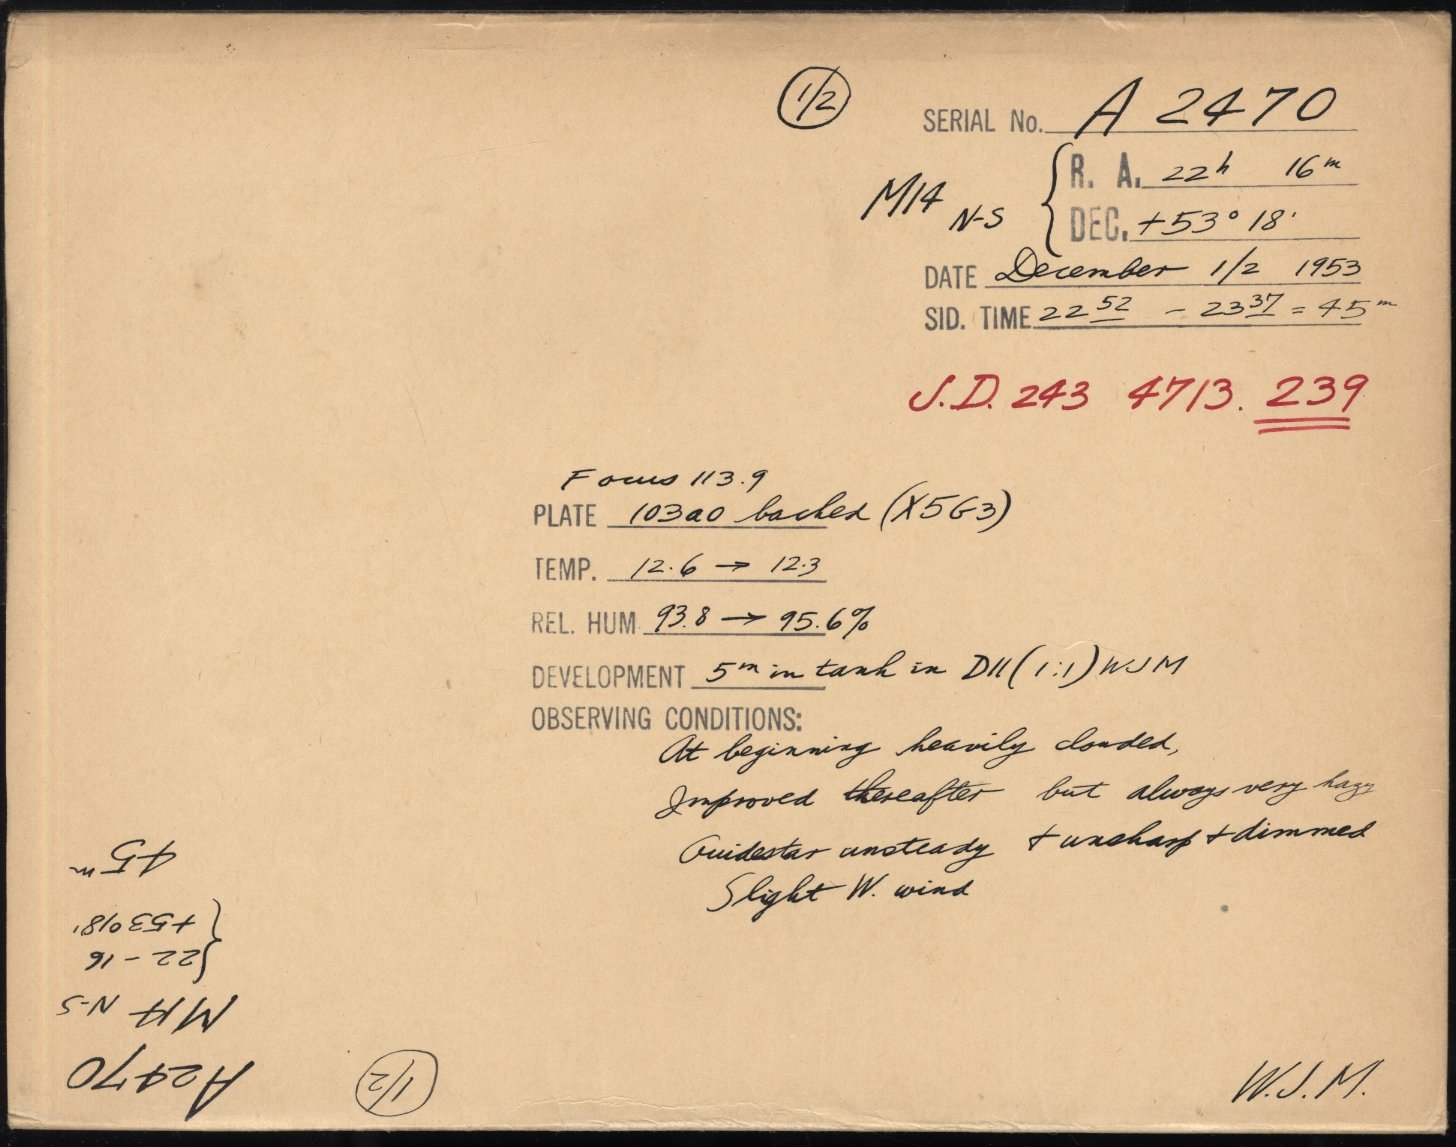 1/2
SERIAL No. A 2470
M14 N-S { R. A. 22h 16m
DEC. +53° 18'
DATE December 1/2 1953
SID. TIME 22 52 - 23 37 = 45m
J.D. 243 4713. 239
Focus 113.9
PLATE 103a0 backed (X5G3)
TEMP. 12.6 → 12.3
REL. HUM. 93.8 → 95.6%
DEVELOPMENT 5m in tank in D11 (1:1) WJM
OBSERVING CONDITIONS:
At beginning heavily clouded,
Improved thereafter but always very hazy
Guidestar unsteady + unsharp + dimmed
Slight W. wind
W.J.M.
1/2
A2470
M14 N-S
{ 22 - 16
+53°18'
45m